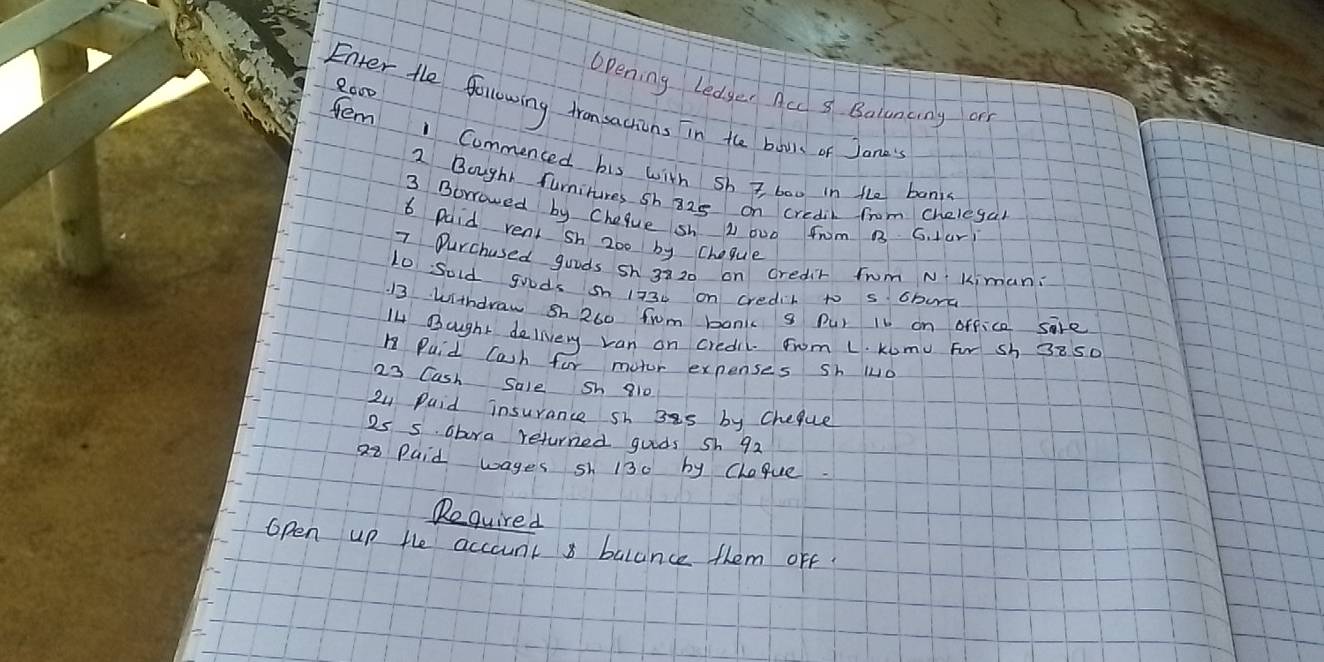 Opening Ledger Acc & Balancing off
Enter the following transactions in the books of Jane's
2000
Fem
1 Commenced bis with sh 7,600 in the bank
2 Bought furnitures sh 825 on credit from Chelegat
3 Borrowed by Cheque sh 2 000 from B. Gitari
6 Paid rent sh 200 by Cheque
7 Purchased goods sh 3820 on credit from N. Kimani
10 Sold goods sh 1736 on credit to S. Obura
13 Withdraw sh 260 from bank & Put it on office safe
14 Bought delivery van on credit from L. Komu for sh 3850
18 Paid Cash for motor expenses sh 140
23 Cash sale sh 810
24 Paid insurance sh 385 by Cheque
25 S. Obura returned goods sh 92
28 Paid wages sh 130 by Cheque.
Required
Open up the account & balance them off.